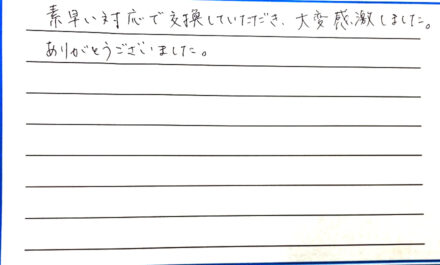 素早い対応で交換していただき、大変感激しました。
ありがとうございました。